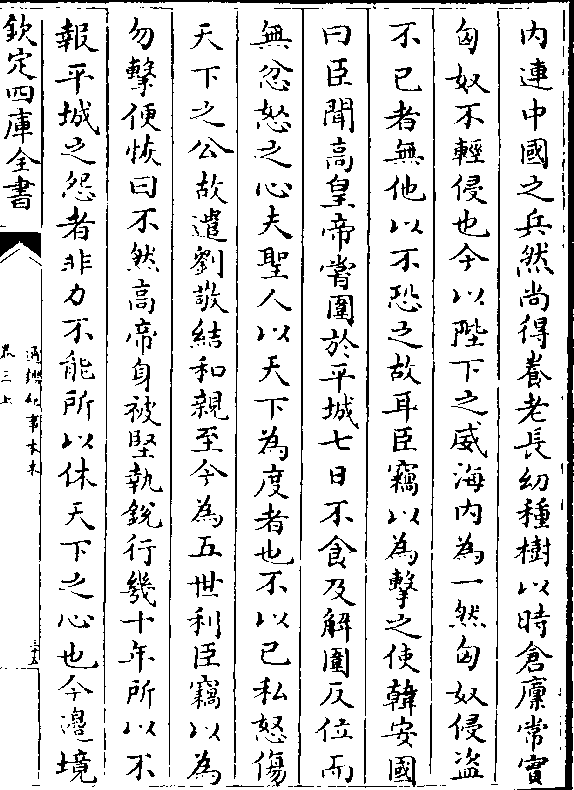 內連中國之兵然尚得養老長幼種樹以時倉廩常實
匈奴不輕侵也今以陛下之威海內為一然匈奴侵盜
不已者無他以不恐之故耳臣竊以為擊之便韓安國
曰臣聞高皇帝嘗圍於平城七日不食及解圍反位而
無忿怒之心夫聖人以天下為度者也不以已私怒傷
天下之公故遣劉敬結和親至今為五世利臣竊以為
勿擊便恢曰不然高帝身被堅執銳行幾十年所以不
報平城之怨者非力不能所以休天下之心也今邊境
欽定四庫全書
通鑑紀事本末
卷三上
三十五